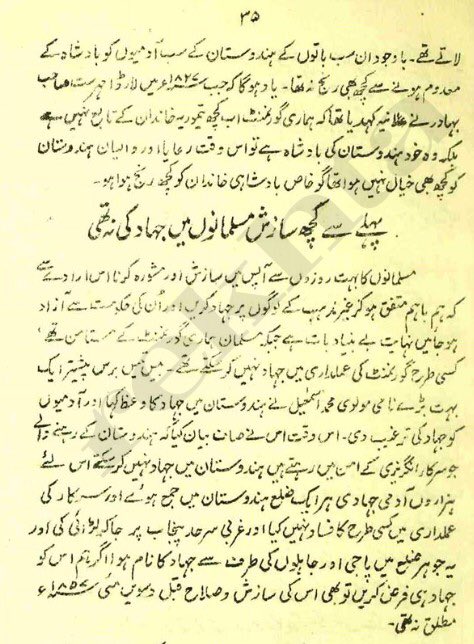 ۳۵
لاتے تھے۔ باوجود ان سب باتوں کے ہندوستان کے سب آدمیوں کو بادشاہ کے
معدوم ہونے سے کچھ بھی رنج نہ تھا۔ یاد ہوگا کہ جب ۱۸۲۷ء میں لارڈ امہرسٹ صاحب
بہادر نے علانیہ کہدیا تھا کہ ہماری گورنمنٹ اب کچھ تیموریہ خاندان کے تابع نہیں ہے
بلکہ وہ خود ہندوستان کی بادشاہ ہے تو اس وقت رعایا اور والیان ہندوستان
کو کچھ بھی خیال نہیں ہوا تھا گو خاص بادشاہی خاندان کو کچھ رنج ہوا ہو۔
پہلے سے کچھ سازش مسلمانوں میں جہاد کی نہ تھی
مسلمانوں کا بہت روزوں سے آپس میں سازش اور مشورہ کرنا اس ارادے سے
کہ ہم باہم متفق ہو کر غیر مذہب کے لوگوں پر جہاد کریں اور اُن کی حکومت سے آزاد
ہو جاویں نہایت بے بنیاد بات ہے جبکہ مسلمان ہماری گورنمنٹ کے مستامن تھے
کسی طرح گورنمنٹ کی عملداری میں جہاد نہیں کر سکتے تھے۔ بیس تیس برس پیشتر ایک
بہت بڑے نامی مولوی محمد اسمٰعیل نے ہندوستان میں جہاد کا وعظ کہا اور آدمیوں
کو جہاد کی ترغیب دی۔ اس وقت اس نے صاف بیان کیا کہ ہندوستان کے رہنے والے
جو سرکار انگریزی کے امن میں رہتے ہیں ہندوستان میں جہاد نہیں کر سکتے اس لئے
ہزاروں آدمی جہادی ہر ایک ضلع ہندوستان میں جمع ہوے اور سرکار کی
عملداری میں کسی طرح کا فساد نہیں کیا اور غربی سرحد پنجاب پر جا کر لڑائی کی اور
یہ جو ہر ضلع میں پاجی اور جاہلوں کی طرف سے جہاد کا نام ہوا اگر ہم اس کو
جہاد ہی فرض کریں تو بھی اس کی سازش و صلاح قبل دسویں مئی ۱۸۵۷ء
مطلق نہ تھی۔